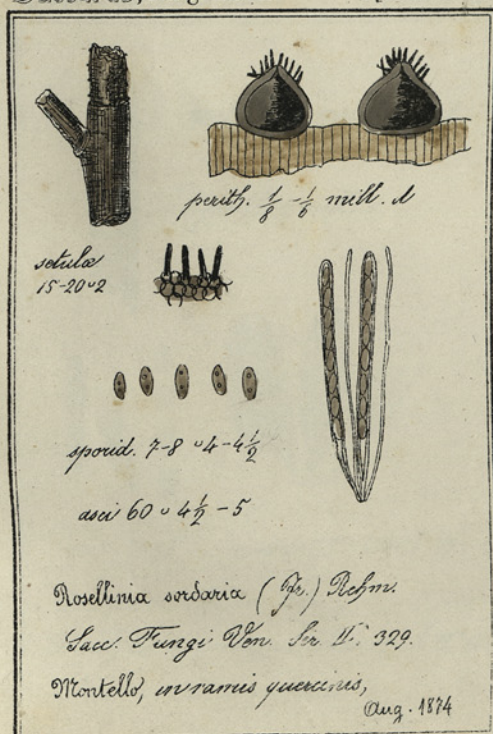 perith. 1/8 - 1/6 mill. d
setulæ
15-20 ⌣ 2
sporid. 7-8 ⌣ 4-4 1/2
asci 60 ⌣ 4 1/2 - 5
Rosellinia sordaria (Fr.) Rehm.
Sacc. Fungi Ven. Ser. II. 329.
Montello, in ramis quercinis,
Aug. 1874